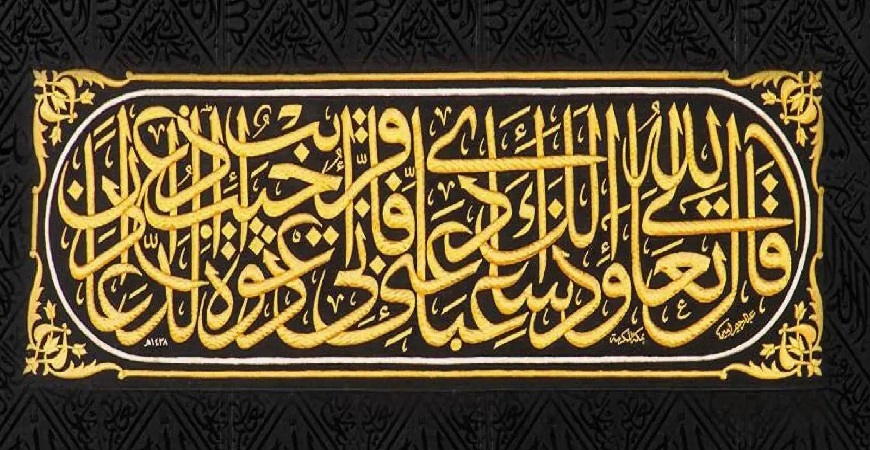 قال الله تعالى وإذا سألك عبادي عني فإني قريب أجيب دعوة الداع إذا دعان
مكة المكرمة
١٤٣٨هـ